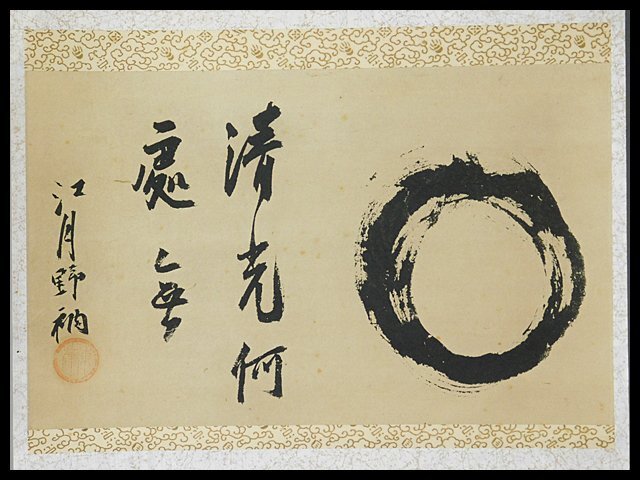 清光何
處無
江月野衲